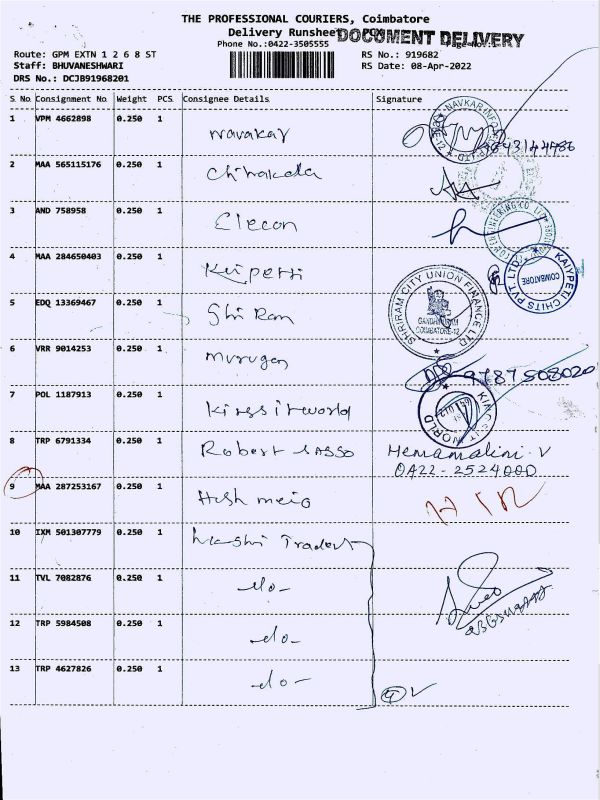 THE PROFESSIONAL COURIERS, Coimbatore
Delivery Runsheet
DOCUMENT DELIVERY
Phone No.:0422-3505555
Page No.:1
Route: GPM EXTN 1 2 6 8 ST
RS No.: 919682
Staff: BHUVANESHWARI
RS Date: 08-Apr-2022
DRS No.: DCJB91968201
S.No Consignment No Weight PCS Consignee Details Signature
1 VPM 4662898 0.250 1 Navakar
2 MAA 565115176 0.250 1
3 AND 758958 0.250 1 Elecon
4 MAA 284650403 0.250 1
KAIYPETI CHITS PVT. LTD. COIMBATORE
5 EDQ 13369467 0.250 1 Shri Ram
SHRIRAM CITY UNION FINANCE LTD GANDHIPURAM COIMBATORE-12
6 VRR 9014253 0.250 1 Murugan 9787508020
7 POL 1187913 0.250 1
8 TRP 6791334 0.250 1 Robert Hemamalini. V
0422-2524000
9 MAA 287253167 0.250 1
10 IXM 501307779 0.250 1 Traders
11 TVL 7082876 0.250 1 -do-
12 TRP 5984508 0.250 1 -do-
13 TRP 4627826 0.250 1 -do-